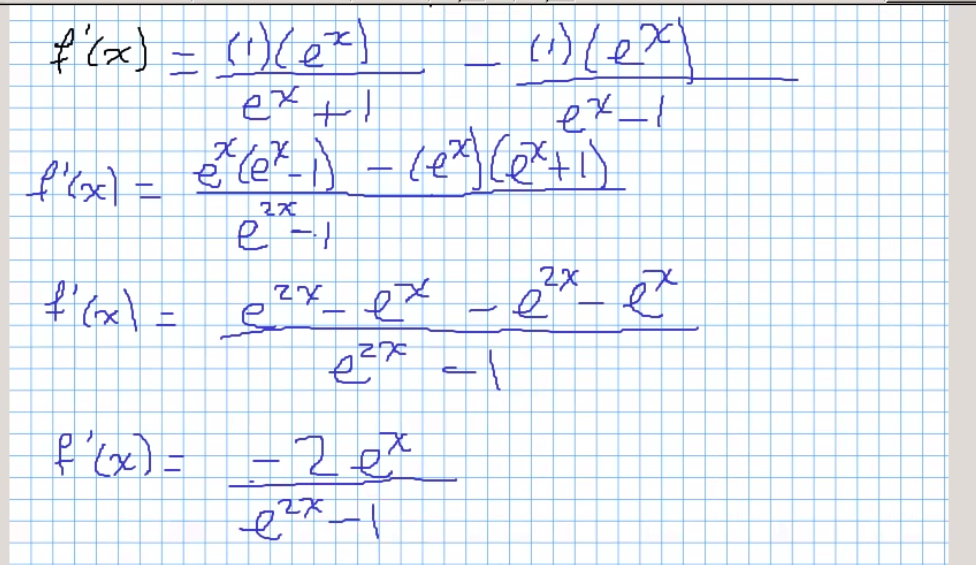 f'(x) = (1)(e^x) / (e^x + 1) - (1)(e^x) / (e^x - 1)
f'(x) = (e^x(e^x - 1) - (e^x)(e^x + 1)) / (e^2x - 1)
f'(x) = (e^2x - e^x - e^2x - e^x) / (e^2x - 1)
f'(x) = (-2e^x) / (e^2x - 1)